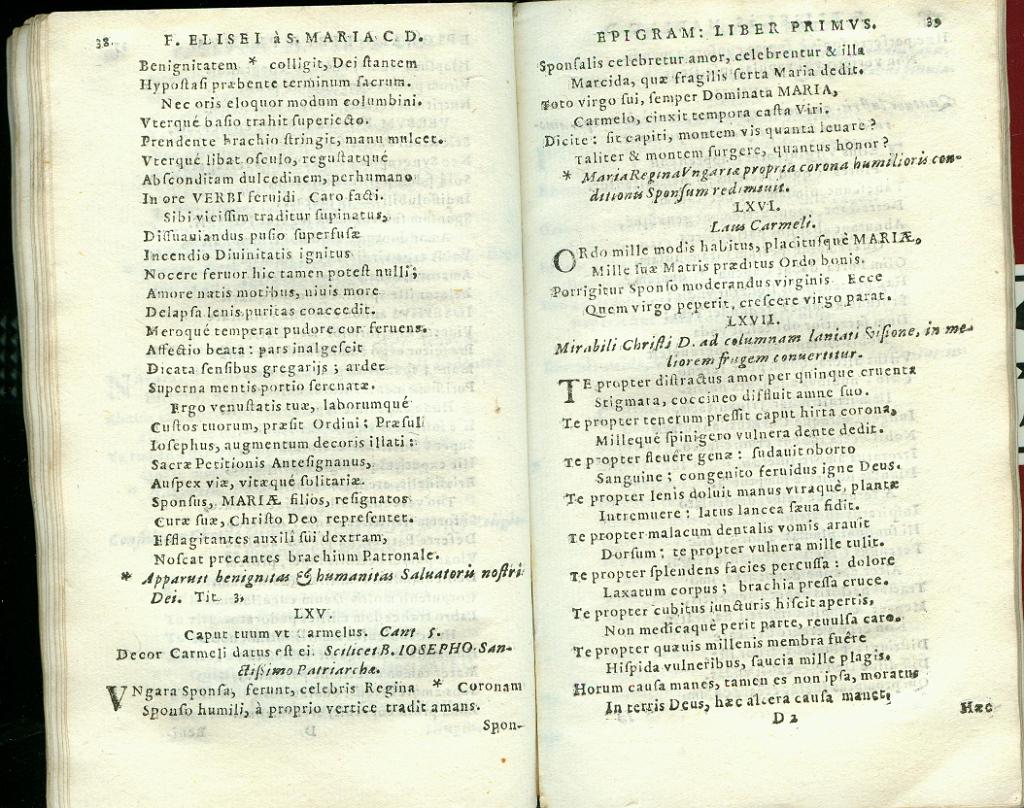 38. F. ELISEI à S. MARIA C. D.
Benignitatem * colligit, Dei stantem
Hypostasi præbente terminum sacrum.
Nec oris eloquor modum columbini.
Vterquè basio trahit superiecto.
Prendente brachio stringit, manu mulcet.
Vterquè libat osculo, regustatquè
Absconditam dulcedinem, perhumano
In ore VERBI feruidi Caro facti.
Sibi vicissim traditur supinatus,
Dissuauiandus pusio superfusæ
Incendio Diuinitatis ignitus
Nocere feruor hic tamen potest nulli;
Amore natis motibus, niuis more
Delapsa lenis puritas coaccedit.
Meroquè temperat pudore cor feruens.
Affectio beata: pars inalgescit
Dicata sensibus gregarijs; ardet
Superna mentis portio serenatæ.
Ergo venustatis tuæ, laborumquè
Custos tuorum, præsit Ordini: Præsul
Iosephus, augmentum decoris illati:
Sacræ Petitionis Antesignanus,
Auspex viæ, vitæquè solitariæ.
Sponsus, MARIÆ filios, resignatos
Curæ suæ, Christo Deo representet.
Efflagitantes auxili sui dextram,
Noscat precantes brachium Patronale.
* Apparuit benignitas & humanitas Saluatoris nostri
Dei. Tit 3.
LXV.
Caput tuum vt Carmelus. Cant 5.
Decor Carmeli datus est ei. Scilicet B. IOSEPHO San-
ctissimo Patriarchæ.
VNgara Sponsa, ferunt, celebris Regina * Coronam
Sponso humili, à proprio vertice tradit amans.
Spon-
EPIGRAM: LIBER PRIMVS. 39
Sponsalis celebretur amor, celebrentur & illa
Marcida, quæ fragilis serta Maria dedit.
Toto virgo sui, semper Dominata MARIA,
Carmelo, cinxit tempora casta Viri.
Dicite: sit capiti, montem vis quanta leuare?
Taliter & montem surgere, quantus honor?
* Maria Regina Vngariæ propria corona humilioris con-
ditionis Sponsum redimiuit.
LXVI.
Laus Carmeli.
ORdo mille modis habitus, placitusquè MARIÆ,
Mille suæ Matris præditus Ordo bonis.
Porrigitur Sponso moderandus virginis Ecce
Quem virgo peperit, crescere virgo parat.
LXVII.
Mirabili Christi D. ad columnam laniati Visione, in me-
liorem frugem conuertitur.
TE propter distractus amor per quinque cruenta
Stigmata, coccineo diffluit amne suo.
Te propter tenerum pressit caput hirta corona,
Millequè spinigero vulnera dente dedit.
Te propter fleuêre genæ: sudauit oborto
Sanguine; congenito feruidus igne Deus.
Te propter lenis doluit manus vtraquè, plantæ
Intremuere: latus lancea sæua fidit.
Te propter malacum dentalis vomis arauit
Dorsum: te propter vulnera mille tulit.
Te propter splendens facies percussa: dolore
Laxatum corpus; brachia pressa cruce.
Te propter cubitus iuncturis hiscit apertis,
Non medicaquè perit parte, reuulsa caro.
Te propter quæuis millenis membra fuêre
Hispida vulneribus, saucia mille plagis.
Horum causa manes, tamen es non ipsa, moratus
In terris Deus, hæc altera causa manet,
D 2
Hæc